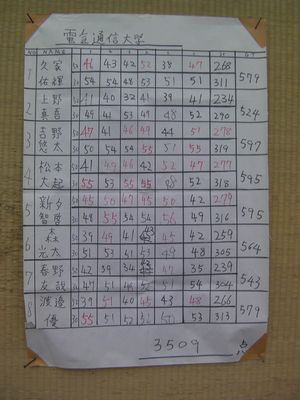 電気通信大学
1 久家 50 46 43 42 52 38 47 268
佑輝 30 54 54 48 53 51 51 311 579
2 上野 50 41 40 32 41 39 41 234
真吾 30 49 41 53 49 48 52 290 524
3 吉野 50 47 41 46 49 44 51 278
悠太 30 50 54 54 55 51 55 319 597
4 松本 50 41 49 46 42 52 47 277
大起 30 55 53 55 55 48 52 318 595
5 新夕 50 45 50 47 45 50 42 279
智啓 30 48 55 54 54 56 49 316 595
6 森 50 39 49 41 43 45 42 259
光太 30 51 53 51 53 49 48 305 564
7 春野 50 42 39 34 47 35 239
友哉 30 47 51 51 54 304 543
8 渡邉 50 39 51 40 45 43 48 266
優 30 55 51 52 52 50 53 313 579
3509 点